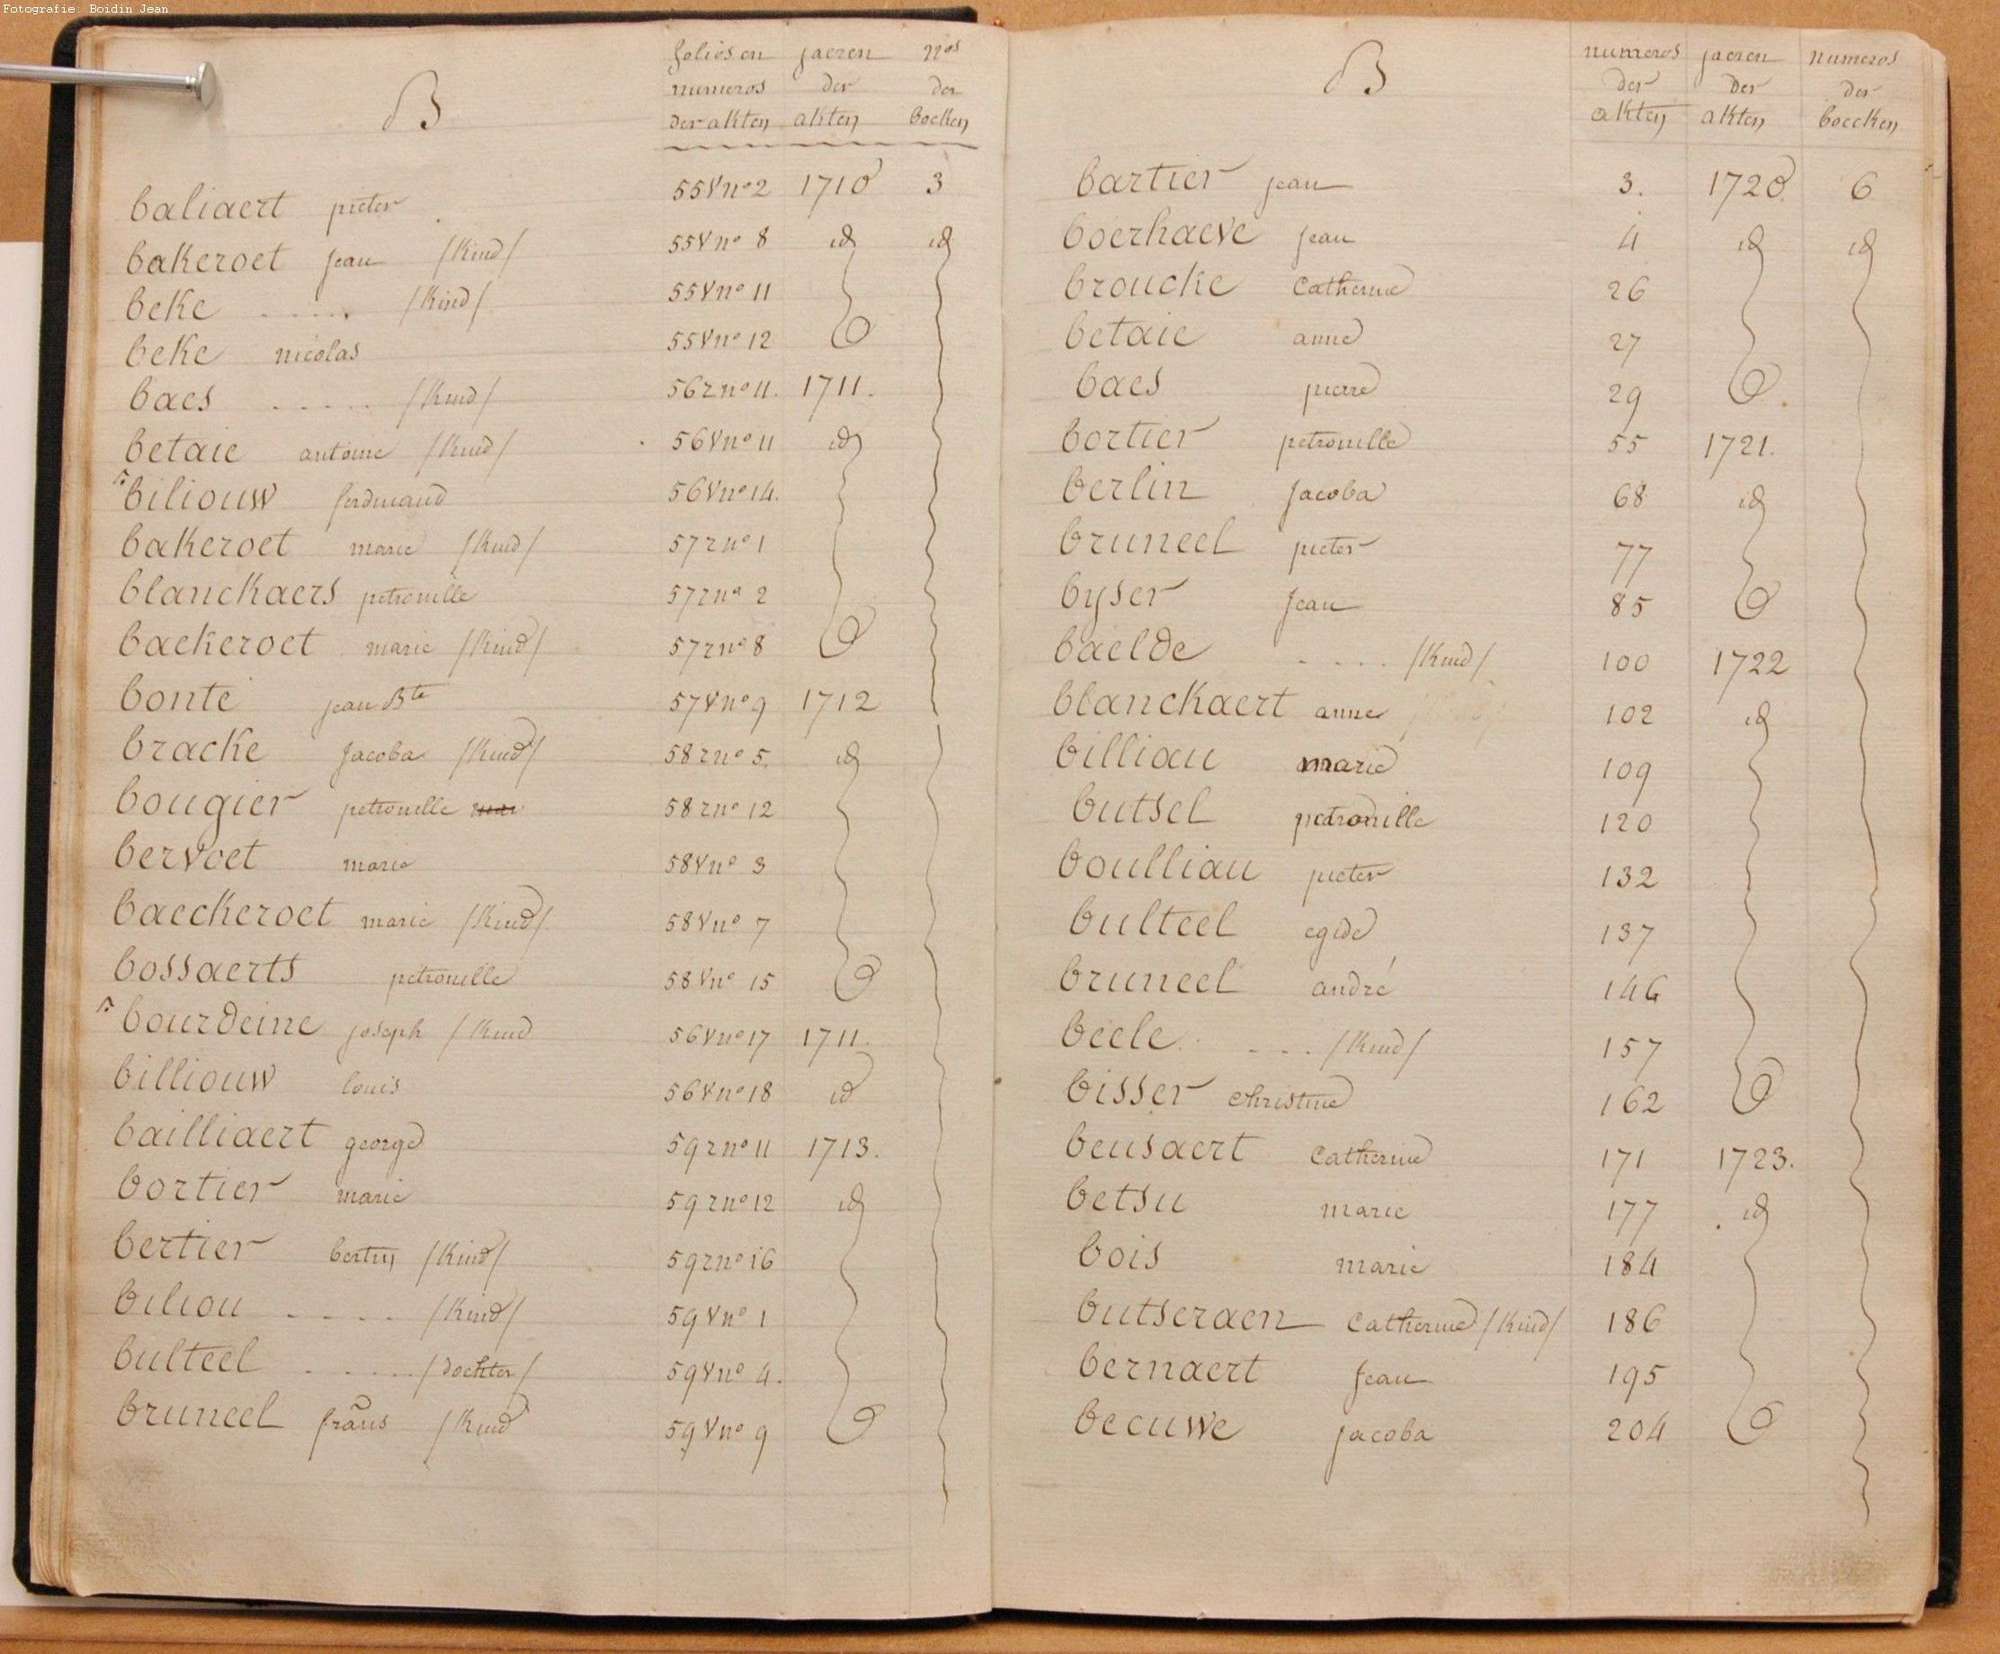 Fotografie: Boidin Jean
B
folios en jaeren nos
numeros der der
der akten akten boeken
baliaert pieter 55V no 2 1710 3
bakeroet jean /kind/ 55V no 8 id id
beke ..... /kind/ 55V no 11
beke nicolas 55V no 12
baes ..... /kind/ 56r no 11. 1711.
betaie antoine /kind/ 56V no 11 id
biliouw ferdinand 56V no 14.
bakeroet marie /kind/ 57r no 1
blanckaers petronille 57r no 2
backeroet marie /kind/ 57r no 8
bonte jean Bte 57V no 9 1712
bracke jacoba /kind/ 58r no 5. id
bougier petronille 58r no 12
bervoet marie 58V no 3
baeckeroet marie /kind/ 58V no 7
bossaerts petronille 58V no 15
bourdeine joseph /kind 56V no 17 1711.
billiouw louis 56V no 18 id
bailliaert george 59r no 11 1713.
bortier marie 59r no 12 id
bertier bertin /kind/ 59r no 16
biliou .... /kind/ 59V no 1
bulteel ..... /dochter/ 59V no 4.
bruneel frans /kind 59V no 9
B
numeros jaeren numeros
der der der
akten akten boecken
bartier jean 3. 1720 6
boerhaeve jean 4 id id
broucke catherine 26
betaie anne 27
baes pierre 29
bortier petronille 55 1721.
berlin jacoba 68 id
bruneel pieter 77
byser jean 85
baelde .... /kind/ 100 1722
blanckaert anne 102 id
billiau marie 109
butsel petronille 120
boulliau pieter 132
bulteel egide 137
bruneel andré 146
beele ... /kind/ 157
bisser christine 162
beusaert catherine 171 1723.
betsu marie 177 id
bois marie 184
butseraen catherine /kind/ 186
bernaert jean 195
becuwe jacoba 204